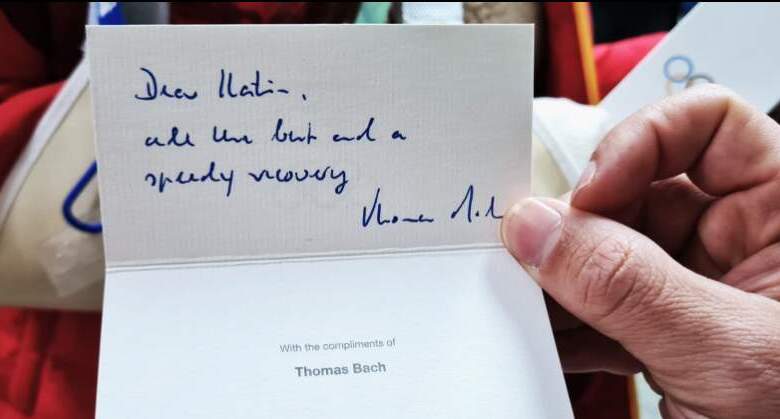 Dear Martin,
all the best and a
speedy recovery
Thomas Bach
With the compliments of
Thomas Bach